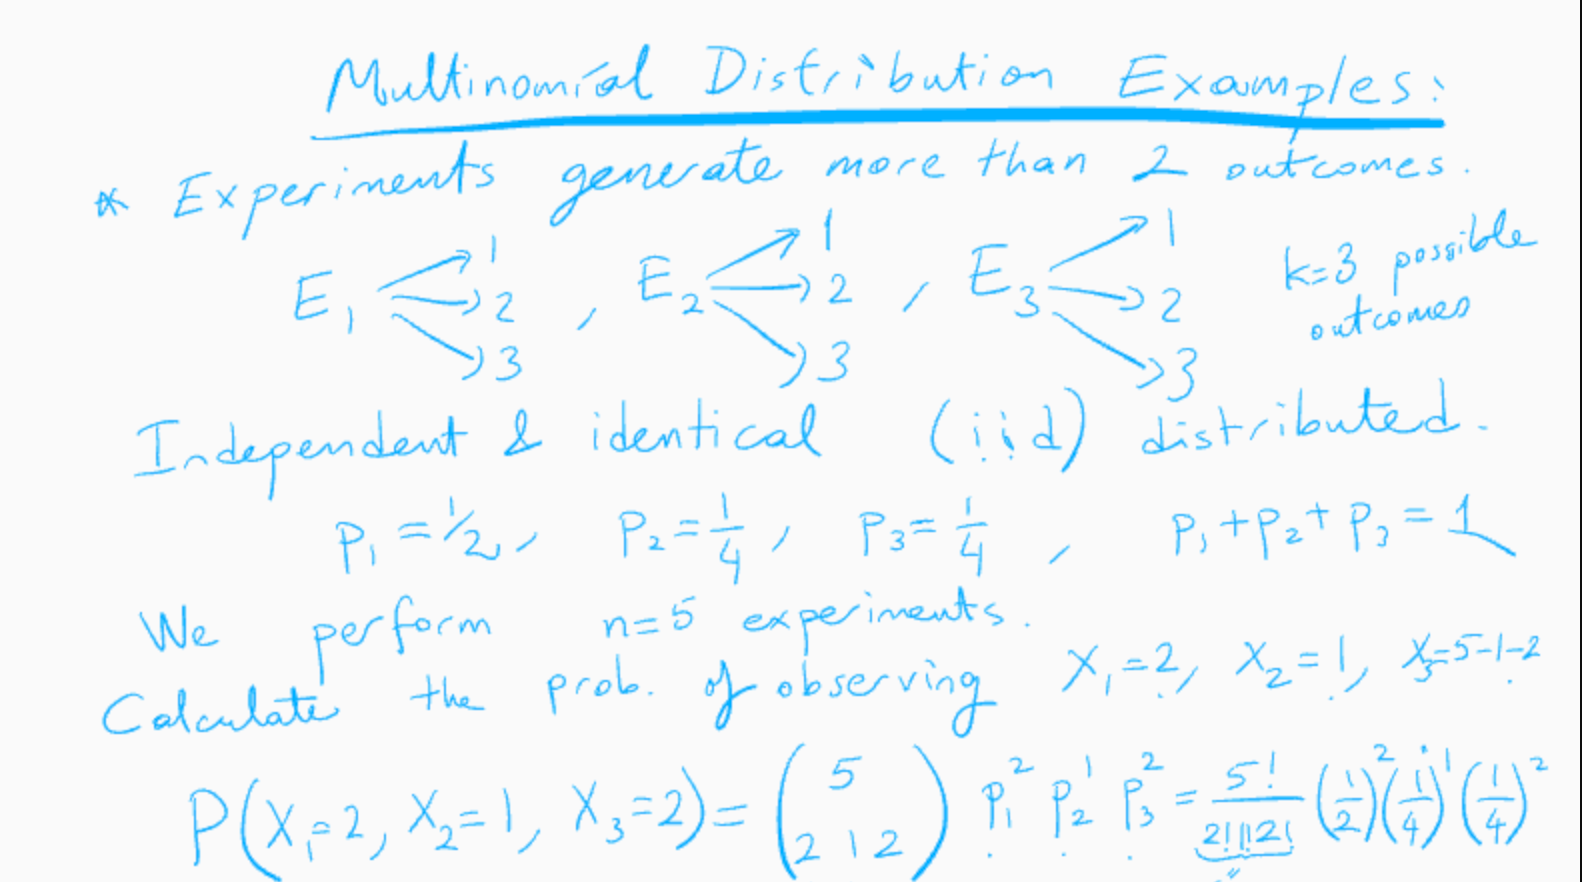 Multinomial Distribution Examples:
* Experiments generate more than 2 outcomes.
E₁ → 1 → 2 → 3 , E₂ → 1 → 2 → 3 , E₃ → 1 → 2 → 3 k=3 possible outcomes
Independent & identical (iid) distributed.
P₁ = 1/2, P₂ = 1/4, P₃ = 1/4, P₁ + P₂ + P₃ = 1
We perform n=5 experiments.
Calculate the prob. of observing X₁=2, X₂=1, X₃=5-1-2
P(X₁=2, X₂=1, X₃=2) = (5 / 2 1 2) P₁² P₂¹ P₃² = 5!/(2!1!2!) (1/2)² (1/4)¹ (1/4)²